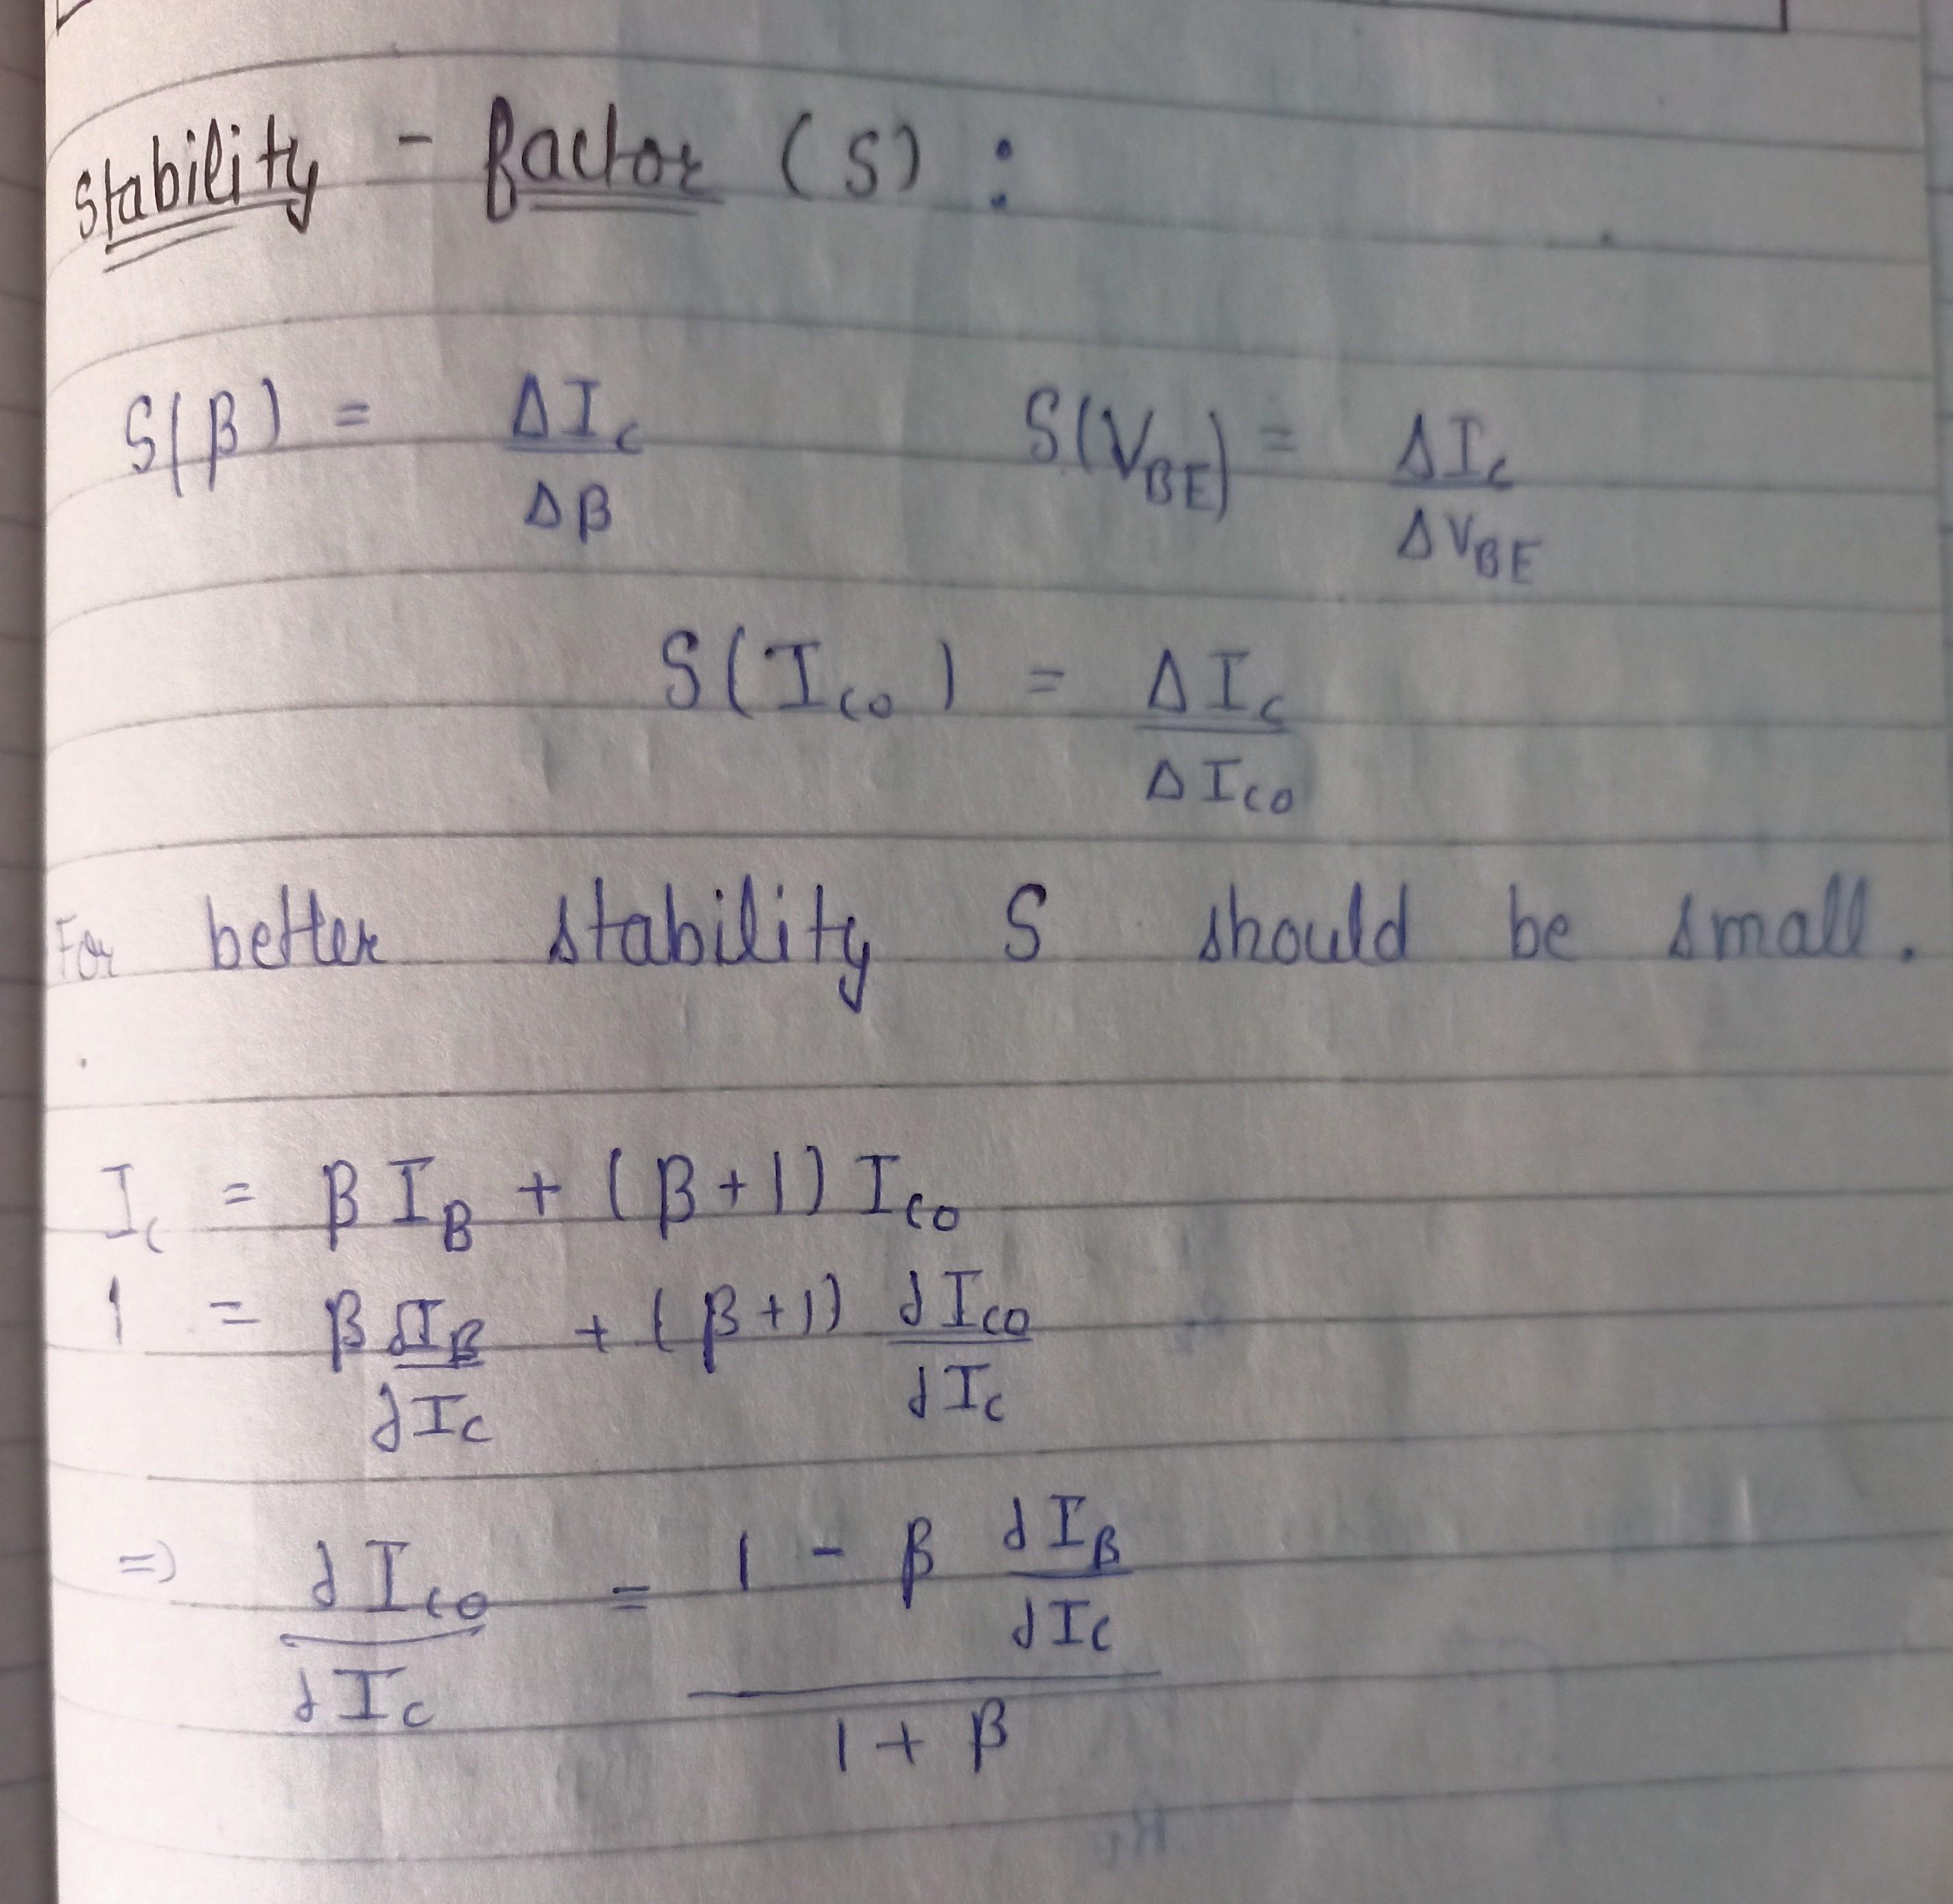 Stability - factor (S) :
S(β) = ΔI_C / Δβ    S(V_BE) = ΔI_C / ΔV_BE
S(I_CO) = ΔI_C / ΔI_CO
For better stability S should be small.
I_C = β I_B + (β+1) I_CO
1 = β ∂I_B / ∂I_C + (β+1) ∂I_CO / ∂I_C
=> ∂I_CO / ∂I_C = (1 - β ∂I_B / ∂I_C) / (1 + β)